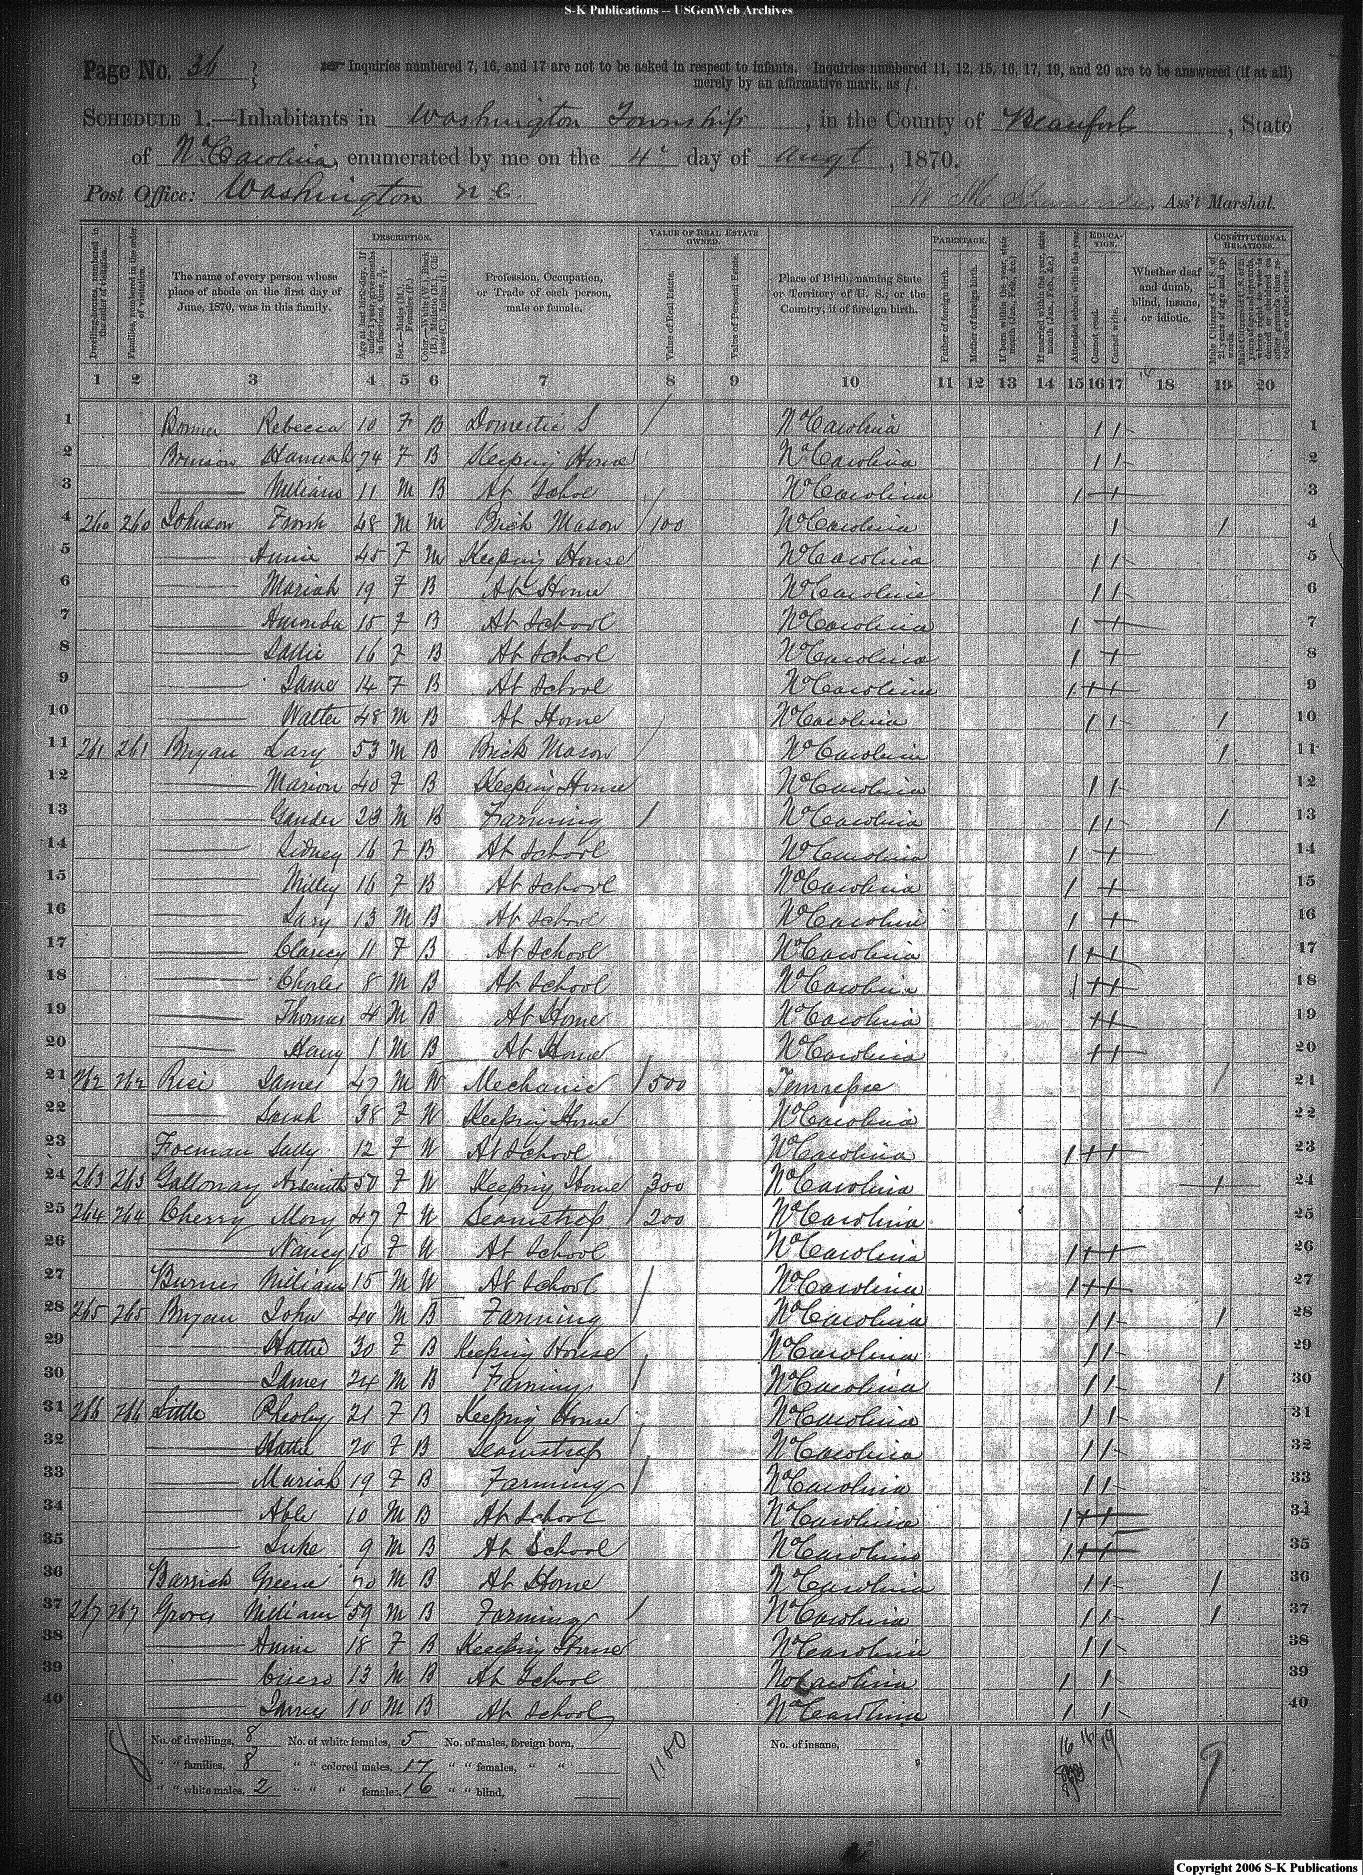 S-K Publications -- USGenWeb Archives
Page No. 36
Inquiries numbered 7, 16, and 17 are not to be asked in respect to infants. Inquiries numbered 11, 12, 15, 16, 17, 19, and 20 are to be answered (if at all)
merely by an affirmative mark, as /.
SCHEDULE 1.—Inhabitants in Washington Township, in the County of Beaufort, State
of No Carolina, enumerated by me on the 4 day of Augt, 1870.
Post Office: Washington N C. Ass't Marshal.
DESCRIPTION. VALUE OF REAL ESTATE OWNED. PARENTAGE. EDUCATION. CONSTITUTIONAL RELATIONS.
The name of every person whose place of abode on the first day of June, 1870, was in this family.
Profession, Occupation, or Trade of each person, male or female.
Value of Real Estate.
Value of Personal Estate.
Place of Birth, naming State or Territory of U. S.; or the Country, if of foreign birth.
Father of foreign birth.
Mother of foreign birth.
Attended school within the year.
Cannot read.
Cannot write.
Whether deaf and dumb, blind, insane, or idiotic.
1 2 3 4 5 6 7 8 9 10 11 12 13 14 15 16 17 18 19 20
1 Rebecca 10 F B Domestic S No Carolina 1 1 1
2 Hannah 74 F B Keeping House No Carolina 1 1 2
3 William 11 M B At Schoo No Carolina 1 3
4 260 260 Johnson Frank 48 M M Brick Mason 100 No Carolina 1 1 4
5 Annie 45 F M Keeping House No Carolina 1 1 5
6 Mariah 19 F B At Home No Carolina 1 1 6
7 Amanda 15 F B At School No Carolina 1 7
8 Sallie 16 F B At School No Carolina 1 8
9 Jane 14 F B At School No Carolina 1 9
10 Walter 48 M B At Home No Carolina 1 1 1 10
11 261 261 Bryan Lary 53 M B Brick Mason No Carolina 1 11
12 Marion 40 F B Keeping House No Carolina 1 1 12
13 23 M B Farming No Carolina 1 1 1 13
14 Sidney 16 F B At School No Carolina 1 14
15 Milley 16 F B At School No Carolina 1 15
16 Lary 13 M B At School No Carolina 1 16
17 Clarcy 11 F B At School No Carolina 1 17
18 Charles 8 M B At School No Carolina 1 18
19 Thomas 4 M B At Home No Carolina 19
20 Harry 1 M B At Home No Carolina 20
21 262 262 Rice James 47 M W Mechanic 500 Tennessee 1 21
22 Sarah 38 F W Keeping House No Carolina 22
23 Foeman Sally 12 F W At School No Carolina 1 23
24 263 263 Galloway 57 F W Keeping House 300 No Carolina 24
25 264 264 Cherry Mary 47 F W Seamstress 200 No Carolina 25
26 Nancy 10 F W At School No Carolina 1 26
27 Burnes William 15 M W At School No Carolina 1 27
28 265 265 Bryan John 40 M B Farming No Carolina 1 1 1 28
29 Hattie 30 F B Keeping House No Carolina 1 1 29
30 James 24 M B Farming No Carolina 1 1 1 30
31 266 266 Little 21 F B Keeping House No Carolina 1 1 31
32 Hattie 20 F B Seamstress No Carolina 1 1 32
33 Mariah 19 F B Farming No Carolina 1 1 33
34 Able 10 M B At School No Carolina 1 34
35 Luke 9 M B At School No Carolina 1 35
36 Barrick Green 70 M B At Home No Carolina 1 1 1 36
37 267 267 Groves William 59 M B Farming No Carolina 1 1 1 37
38 Annie 18 F B Keeping House No Carolina 1 1 38
39 Cicero 13 M B At School No Carolina 1 1 39
40 James 10 M B At School No Carolina 1 1 40
No. of dwellings, 8 No. of white females, 5 No. of males, foreign born, 1100 No. of insane, 16 16 19 9
" " families, 8 " " colored males, 17 " " females, " "
" " white males, 2 " " " females, 16 " " blind,
Copyright 2006 S-K Publications